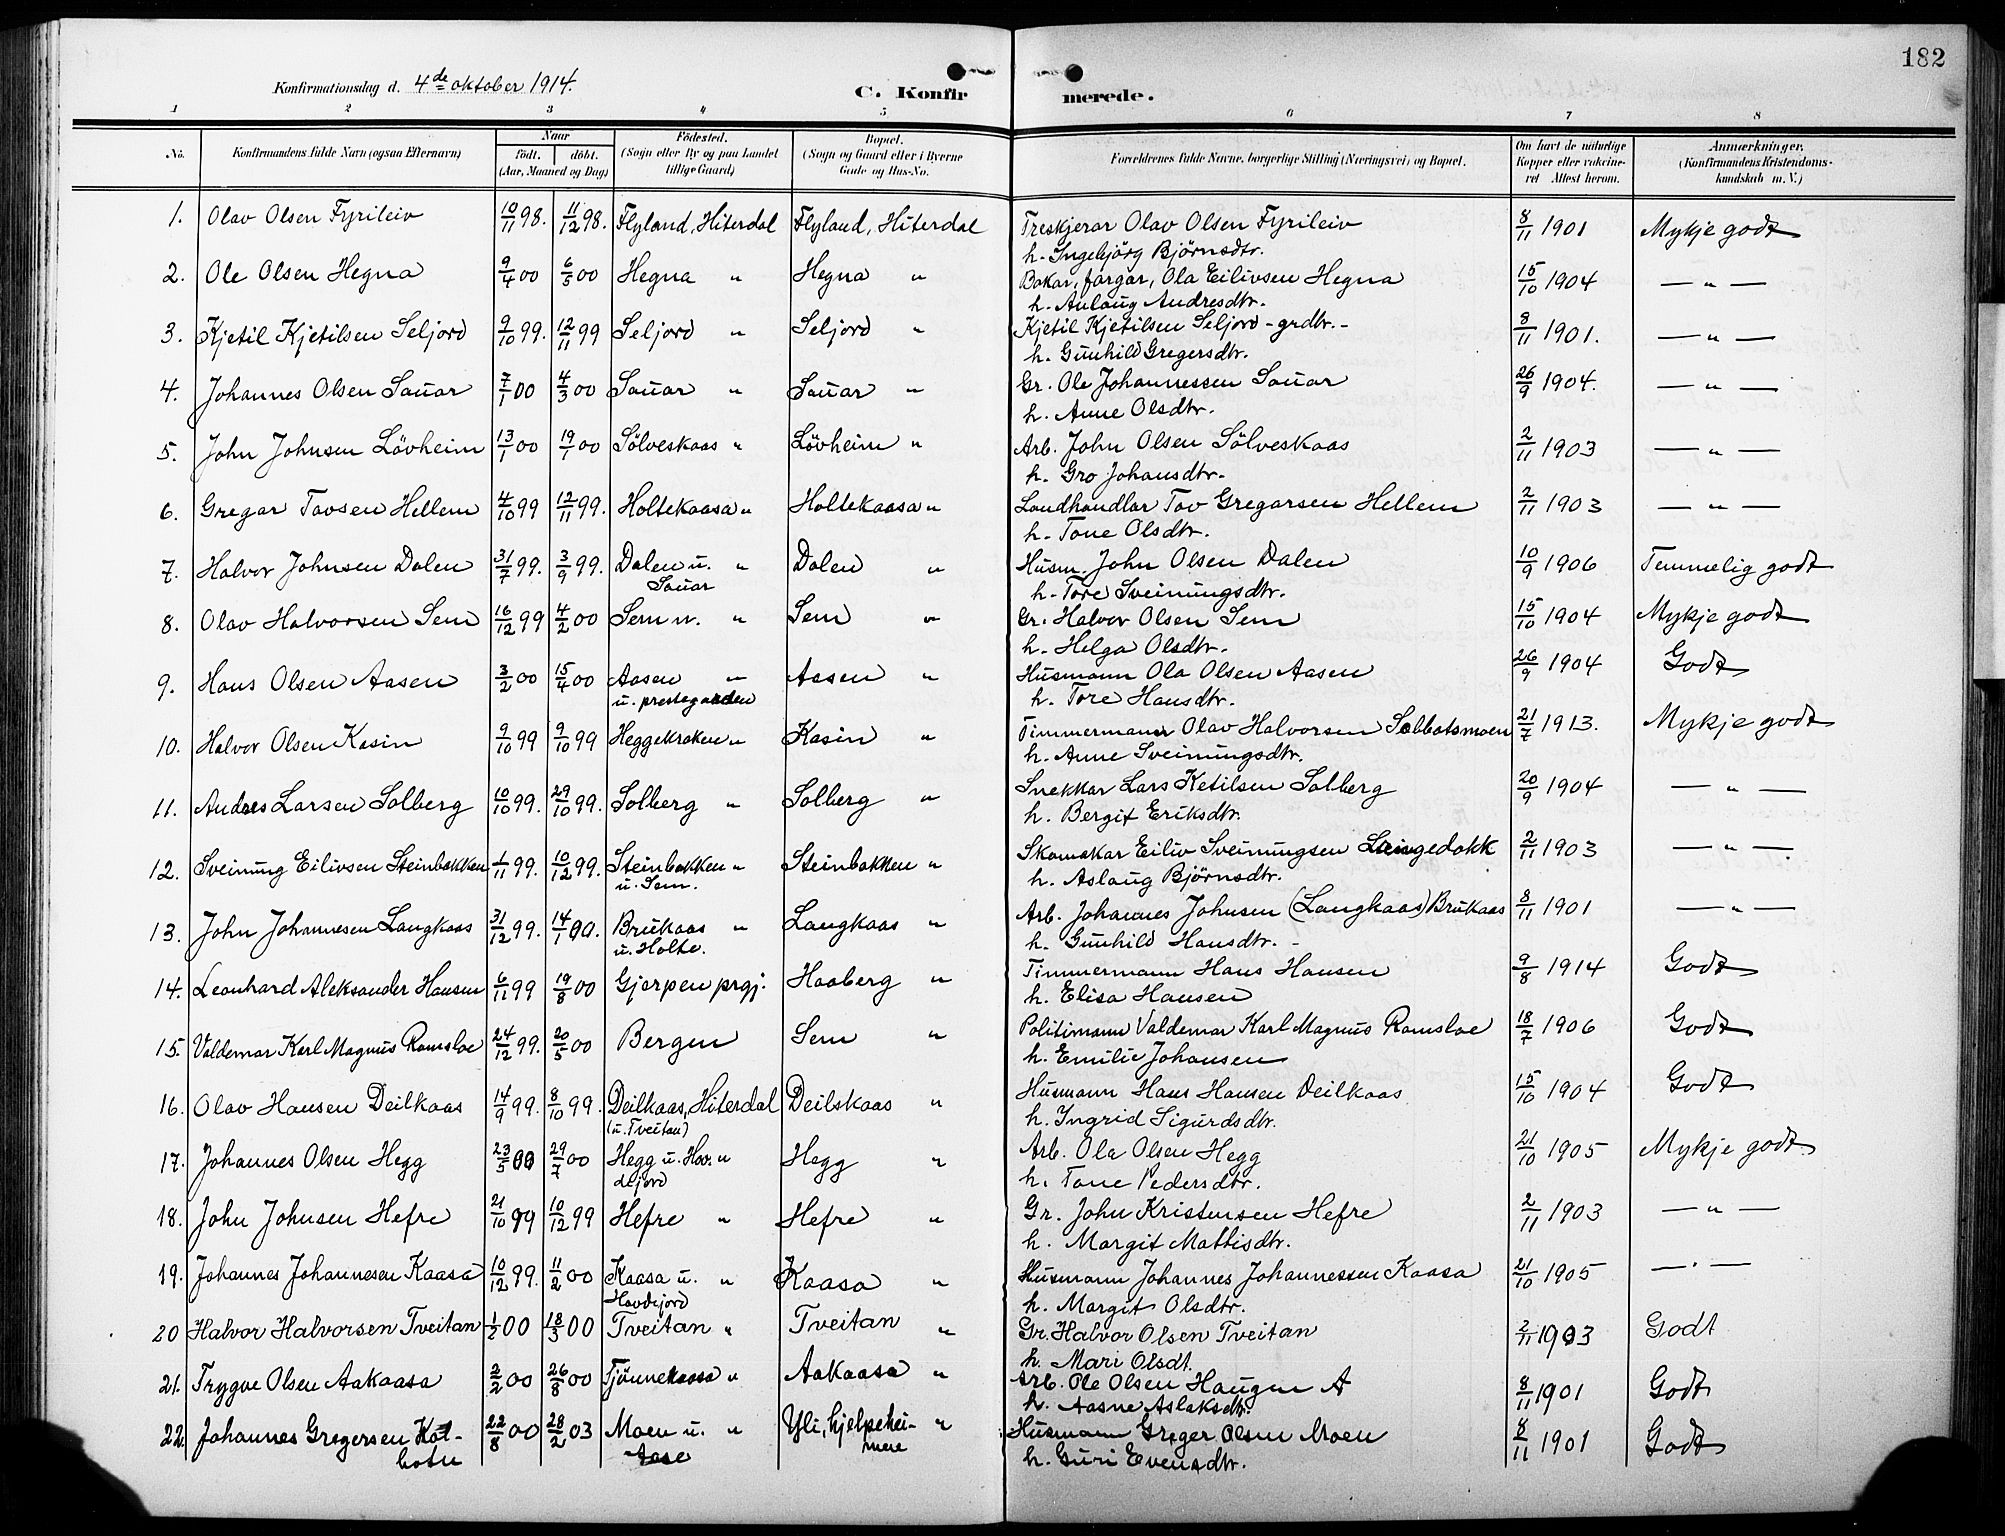 182
Konfirmationsdag d. 4de oktober 1914.
C. Konfirmerede.
1 2 3 4 5 6 7 8
No. | Konfirmandens fulde Navn (ogsaa Efternavn) | Naar födt. döbt. (Aar, Maaned og Dag) | Födested. (Sogn eller By og paa Landet tillige Gaard) | Bopæl. (Sogn og Gaard eller i Byerne Gade og Hus-No. | Forældrenes fulde Navne, borgerlige Stilling (Næringsvei) og Bopæl. | Om havt de naturlige Kopper eller vakcineret Attest herom. | Anmærkninger. (Konfirmandens Kristendomskundskab m. V.)
1. Olav Olsen Fyrileiv 10/11 98. 11/12 98. Flyland, Hiterdal Flyland, Hiterdal Treskjerar Olav Olsen Fyrileiv 8/11 1901 Mykje godt
h. Ingebjörg Björnsdtr.
2. Ole Olsen Hegna 9/4 00 6/5 00 Hegna " Hegna " Bakar, fargar, Ola Eilivsen Hegna 15/10 1904 — " —
h. Anlaug Andresdtr.
3. Kjetil Kjetilsen Seljord 9/10 99. 12/11 99 Seljord " Seljord " Kjetil Kjetilsen Seljord - grdbr. - 8/11 1901. — " —
h. Gunhild Gregersdtr.
4. Johannes Olsen Sauar 7/1 00 4/3 00 Sauar " Sauar " Gr. Ole Johannessen Sauar 26/9 1904. — " —
h. Anne Olsdtr.
5. John Johnsen Lövheim 13/1 00 19/1 00 Sölveskaas " Lövheim " Arb. John Olsen Sölveskaas 2/11 1903 — " —
h. Gro Johansdtr.
6. Gregar Tovsen Hellem 4/10 99 12/11 99. Holtekaasa " Holtekaasa " Landhandlar Tov Gregarsen Hellem 2/11 1903 — " —
h. Tone Olsdtr.
7. Halvor Johnsen Dalen 31/7 99. 3/9 99. Dalen u. " Dalen " Husm. John Olsen Dalen 10/9 1906 Temmelig godt
Sauar h. Tore Sveinungsdtr.
8. Olav Halvorsen Sem 16/12 99 4/2 00 Sem n. " Sem " Gr. Halvor Olsen Sem 15/10 1904 Mykje godt
h. Helga Olsdtr.
9. Hans Olsen Aasen 3/2 00 15/4 00 Aasen " Aasen " Husmann Ola Olsen Aasen 26/9 1904 Godt
u. prestegarden h. Tore Hansdtr.
10. Halvor Olsen Kasin 9/10 99 9/10 99 Heggekraken " Kasin " Timmermann Olav Halvorsen Sabbatsmoen 21/7 1913. Mykje godt
h. Anne Sveinungsdtr.
11. Andres Larsen Solberg 10/10 99. 29/10 99. Solberg " Solberg " Snekkar Lars Ketilsen Solberg 20/9 1904 — " —
h. Bergit Eriksdtr.
12. Sveinung Eilivsen Steinbakken 1/11 99. 10/12 99. Steinbakken " Steinbakken " Skomakar Eiliv Sveinungsen 2/11 1903 — " —
u. Sem. h. Aslaug Björnsdtr.
13. John Johannesen Langkaas 31/12 99. 14/1 00. Brukaas " Langkaas " Arb. Johannes Johnsen (Langkaas) Brukaas 8/11 1901 — " —
u. Holte. h. Gunhild Hansdtr. -
14. Leonhard Aleksander Hansen 6/11 99 19/8 00 Gjerpen prgj. Haaberg " Timmermann Hans Hansen 9/8 1914 Godt
h. Elisa Hansen
15. Valdemar Karl Magnus Ramsloe 24/12 99. 20/5 00 Bergen Sem " Politimann Valdemar Karl Magnus Ramsloe 18/7 1906 Godt
h. Emilie Johansen
16. Olav Hansen Deilkaas 14/9 99. 8/10 99. Deilkaas, Hiterdal Deilskaas " Husmann Hans Hansen Deilkaas 15/10 1904 Godt
(u. Tveitan) h. Ingrid Sigurdsdtr.
17. Johannes Olsen Hegg 23/5 00 29/7 00 Hegg u. Hov- " Hegg " Arb. Ola Olsen Hegg 21/10 1905 Mykje godt
dejord h. Tone Pedersdtr.
18. John Johnsen Hefre 21/10 99 10/12 99 Hefre " Hefre " Gr. John Kristensen Hefre 2/11 1903 — " —
h. Margit Mattisdtr.
19. Johannes Johannesen Kaasa 10/12 99. 11/2 00 Kaasa u. " Kaasa " Husmann Johannes Johannessen Kaasa 21/10 1905 — " —
Hovdejord h. Margit Olsdtr.
20 Halvor Halvorsen Tveitan 1/2 00 18/3 00 Tveitan " Tveitan " Gr. Halvor Olsen Tveitan 2/11 1903 Godt
h. Mari Olsdt.
21. Trygve Olsen Aakaasa 2/2 00 26/8 00 Tjönnekaasa " Aakaasa " Arb. Ole Olsen Haugen A 8/11 1901 Godt
h. Aasne Aslaksdtr.
22. Johannes Gregersen Kol- 22/8 00 28/2 03 Moen u. " Yli, hjelpehei- " Husmann Greger Olsen Moen 8/11 1901 Godt
botn Aase mene h. Guri Evensdtr.